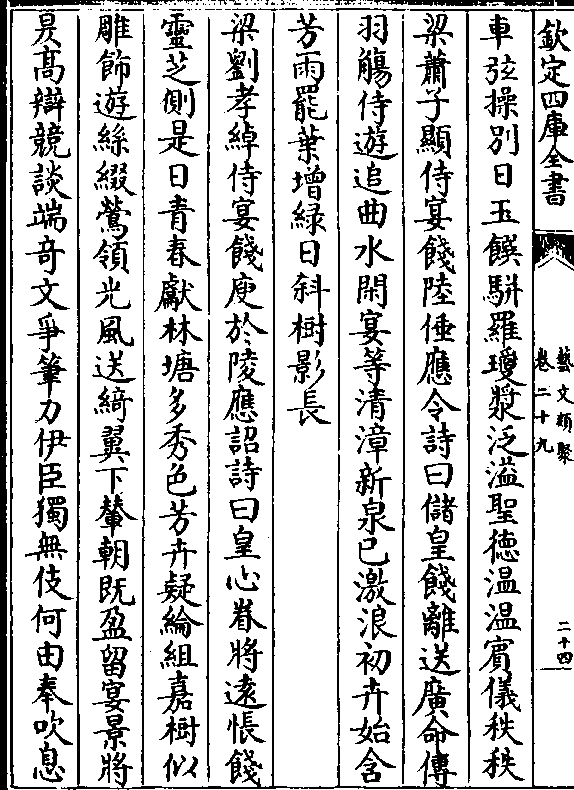 欽定四庫全書
藝文類聚
卷二十九
二十四
車弦操別日玉饌駢羅瓊漿泛溢聖德温温賓儀秩秩
梁蕭子顯侍宴餞陸倕應令詩曰儲皇餞離送廣命傳
羽觴侍遊追曲水開宴等清漳新泉已激浪初卉始含
芳雨罷葉增緑日斜樹影長
梁劉孝綽侍宴餞庾於陵應詔詩曰皇心眷將逺悵餞
靈芝側是日青春獻林塘多秀色芳卉疑綸組嘉樹似
雕飾遊絲綴鶯領光風送綺翼下輦朝既盈留宴景將
昃高辯競談端竒文爭筆力伊臣獨無伎何由奉吹息